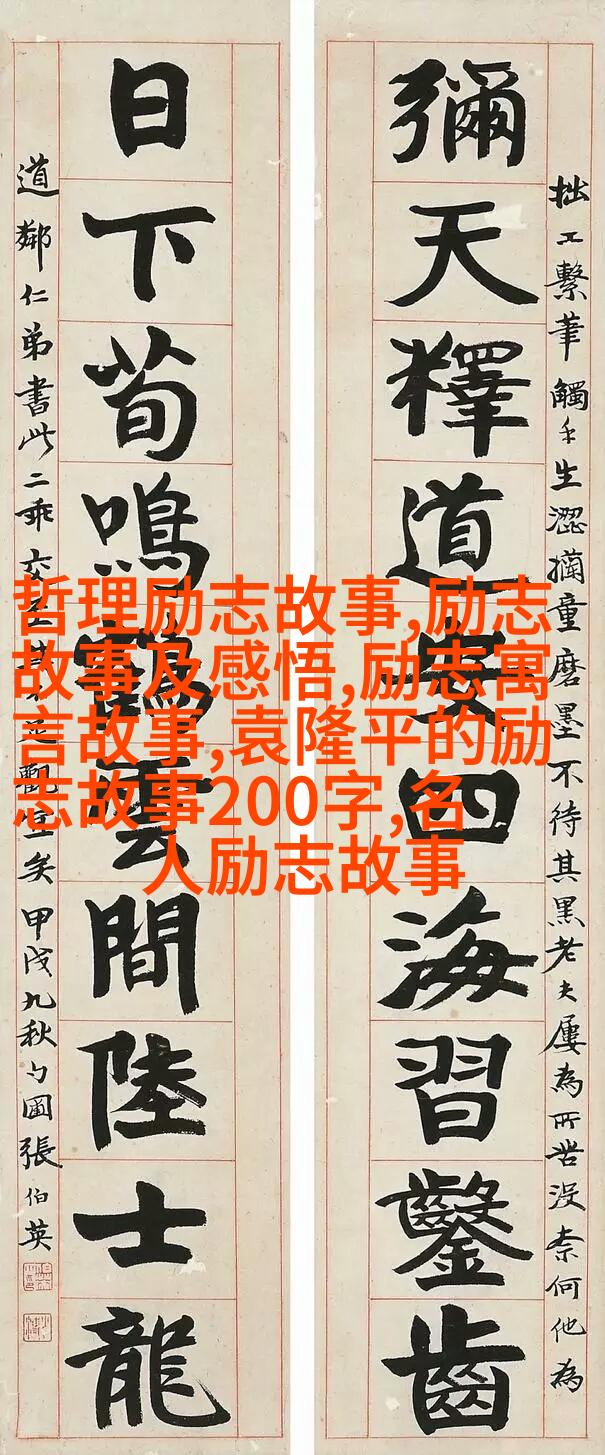 拙工繫筆觸手生澀摛童磨墨不待其黑老夫屢為所苦沒柰何他為
彌天釋道安四海習鑿齒
日下荀鳴鶴雲間陸士龍
道鄰仁弟書此二乖交至觀宜矣甲戌九秋勺圃張伯英
哲理励志故事,励志
故事及感悟,励志寓
言故事,袁隆平的励
志故事200字,名
人励志故事